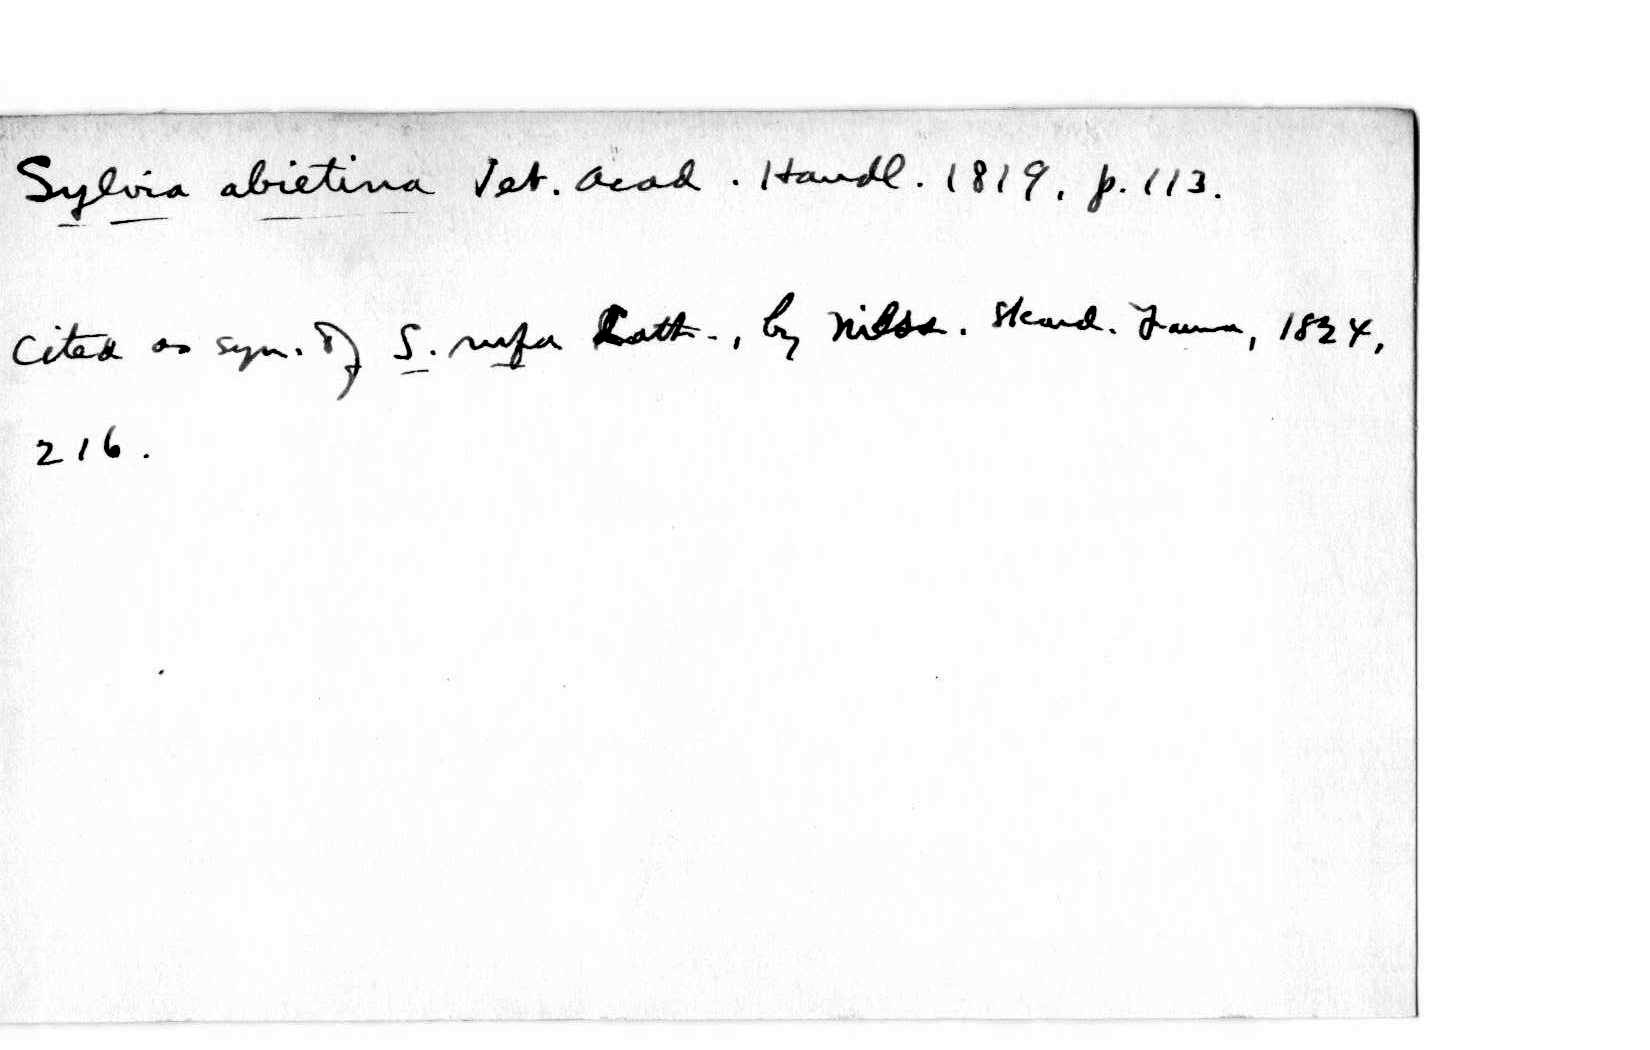 Sylvia abietina Vet. Acad. Handl. 1819, p. 113.
Cited as syn. of S. rufa Lath., by Nilss. Skand. Fauna, 1824,
216.